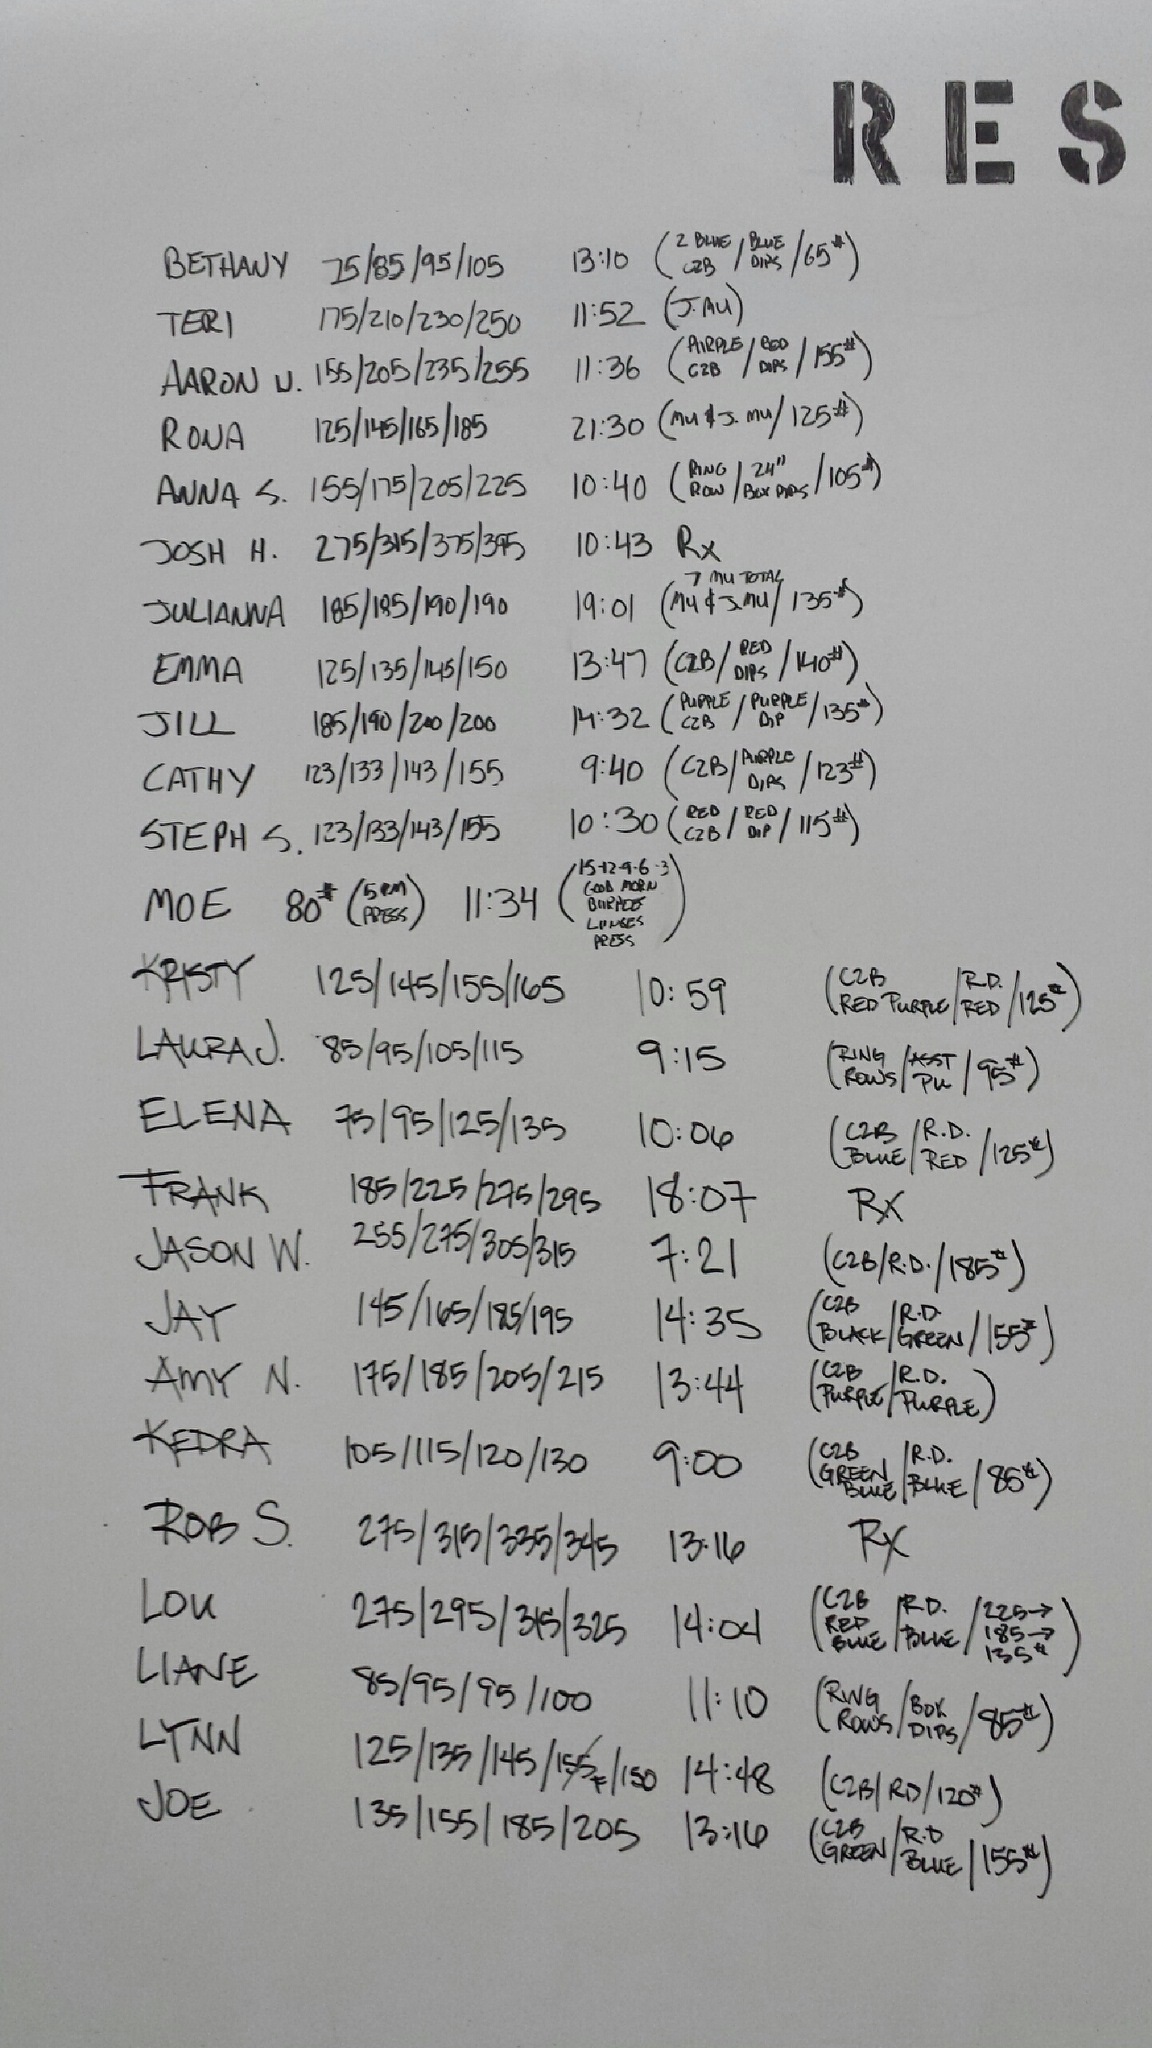 RES
BETHANY 75/85/95/105 13:10 (2 BLUE C2B/BLUE DIPS/65#)
TERI 175/210/230/250 11:52 (J.MU)
AARON W. 155/205/235/255 11:36 (PURPLE C2B/RED DIPS/155#)
RONA 125/145/165/185 21:30 (MU & J.MU/125#)
ANNA S. 155/175/205/225 10:40 (RING ROW/24" BOX DIPS/105#)
JOSH H. 275/315/375/395 10:43 Rx
7 MU TOTAL
JULIANNA 185/185/190/190 19:01 (MU & J.MU/135#)
EMMA 125/135/145/150 13:47 (C2B/RED DIPS/140#)
JILL 185/190/200/200 14:32 (PURPLE C2B/PURPLE DIP/135#)
CATHY 123/133/143/155 9:40 (C2B/PURPLE DIPS/123#)
STEPH S. 123/133/143/155 10:30 (RED C2B/RED DIP/115#)
MOE 80# (5RM PRESS) 11:34 (15-12-9-6-3 GOOD MORN BURPEES LUNGES PRESS)
KRISTY 125/145/155/165 10:59 (C2B RED PURPLE/R.D. RED/125#)
LAURA J. 85/95/105/115 9:15 (RING ROWS/ASST PU/95#)
ELENA 75/95/125/135 10:06 (C2B BLUE/R.D. RED/125#)
FRANK 185/225/275/295 18:07 RX
JASON W. 255/275/305/315 7:21 (C2B/R.D./185#)
JAY 145/165/185/195 14:35 (C2B BLACK/R.D. GREEN/155#)
AMY N. 175/185/205/215 13:44 (C2B PURPLE/R.D. PURPLE)
KEDRA 105/115/120/130 9:00 (C2B GREEN BLUE/R.D. BLUE/85#)
ROB S. 275/315/335/345 13:16 RX
LOU 275/295/315/325 14:04 (C2B RED BLUE/R.D. BLUE/225→ 185→ 135#)
LIANE 85/95/95/100 11:10 (RING ROWS/BOX DIPS/85#)
LYNN 125/135/145/155F/150 14:48 (C2B/RD/120#)
JOE 135/155/185/205 13:16 (C2B GREEN/R.D BLUE/155#)